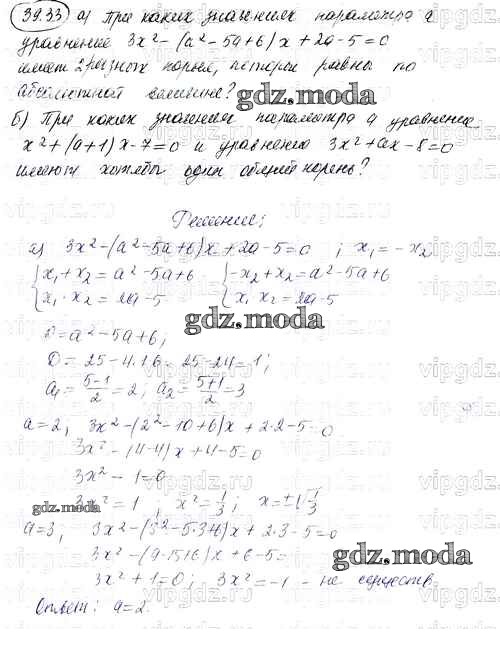 39.33 а) При каких значениях параметра а
уравнение 3x² - (a² - 5a + 6)x + 2a - 5 = 0
имеет 2 разных корня, которые равны по
абсолютной величине?
gdz.moda
б) При каких значениях параметра а уравнение
x² + (a+1)x - 7 = 0 и уравнение 3x² + ax - 8 = 0
имеют хотя бы один общий корень?
Решение:
а) 3x² - (a² - 5a + 6)x + 2a - 5 = 0 ; x₁ = -x₂
{ x₁ + x₂ = a² - 5a + 6 { -x₂ + x₂ = a² - 5a + 6
{ x₁ · x₂ = 2a - 5 { x₁ x₂ = 2a - 5
gdz.moda
0 = a² - 5a + 6;
D = 25 - 4·1·6 = 25 - 24 = 1;
a₁ = (5-1)/2 = 2; a₂ = (5+1)/2 = 3
a = 2, 3x² - (2² - 10 + 6)x + 2·2 - 5 = 0
3x² - (4-4)x + 4 - 5 = 0
3x² - 1 = 0
gdz.moda
3x² = 1 , x² = 1/3 ; x = ±√1/3
a = 3, 3x² - (3² - 5·3 + 6)x + 2·3 - 5 = 0
3x² - (9 - 15 + 6)x + 6 - 5 =
gdz.moda
3x² + 1 = 0; 3x² = -1 - не существ.
Ответ: a = 2.